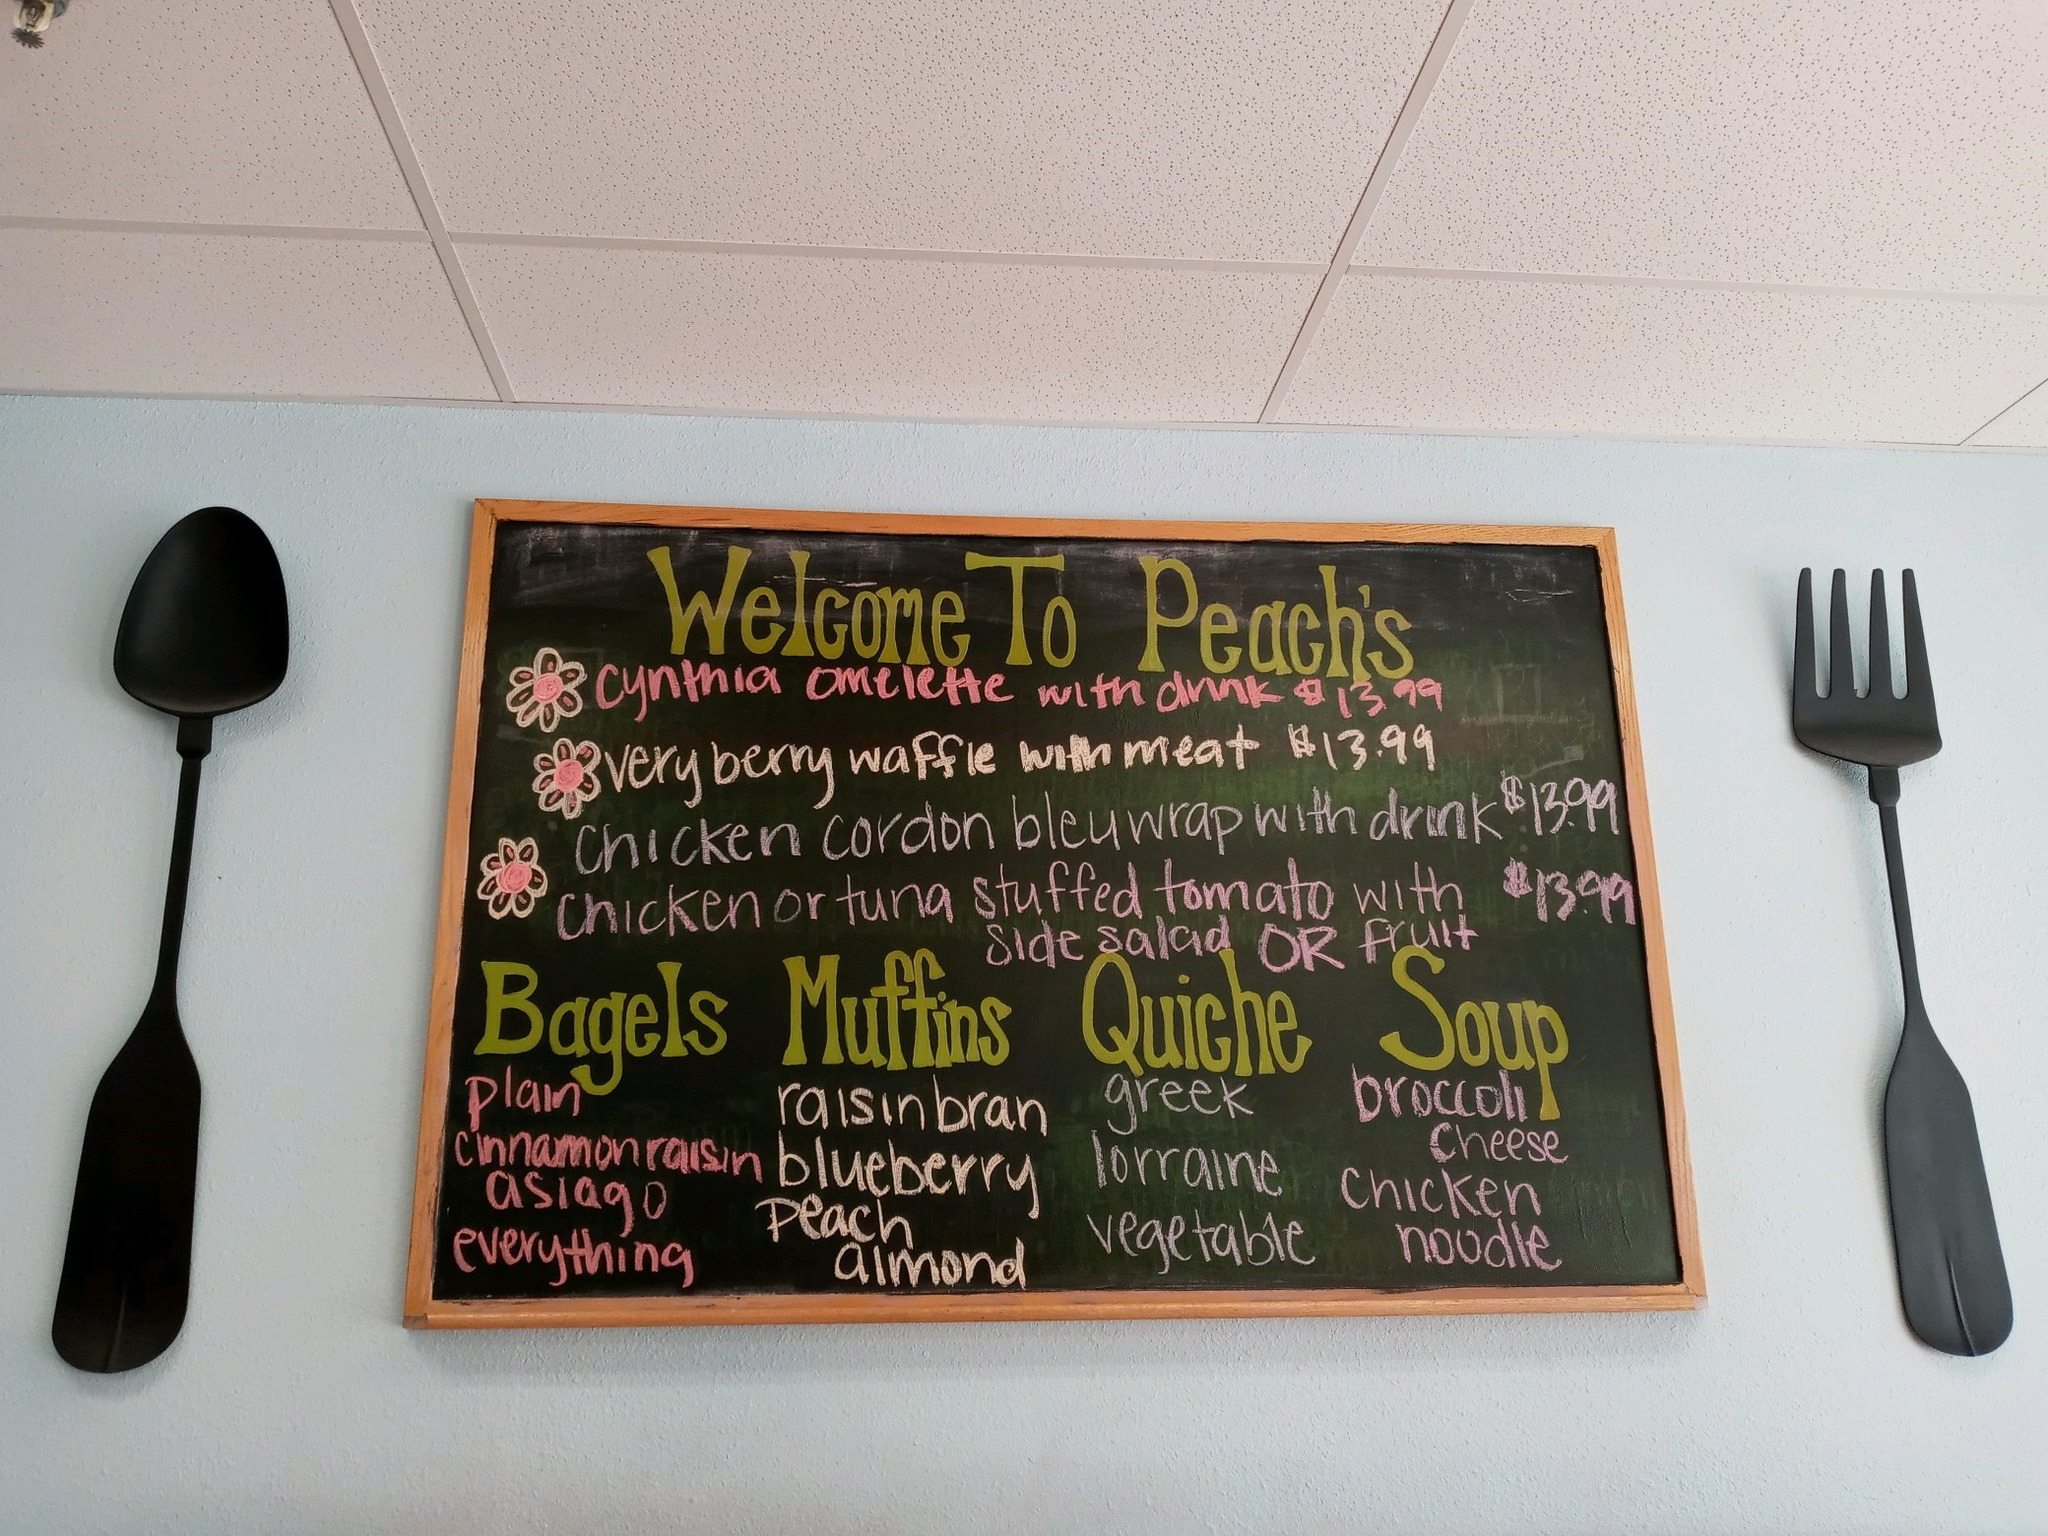 Welcome To Peach's
cynthia omelette with drink $13.99
very berry waffle with meat $13.99
chicken cordon bleu wrap with drink $13.99
chicken or tuna stuffed tomato with $13.99
side salad OR fruit
Bagels Muffins Quiche Soup
plain raisin bran greek broccoli
cheese
cinnamon raisin blueberry lorraine chicken
asiago peach vegetable noodle
everything almond